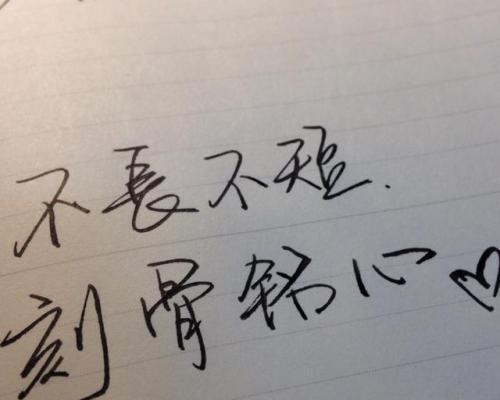 不長不短.
刻骨铭心